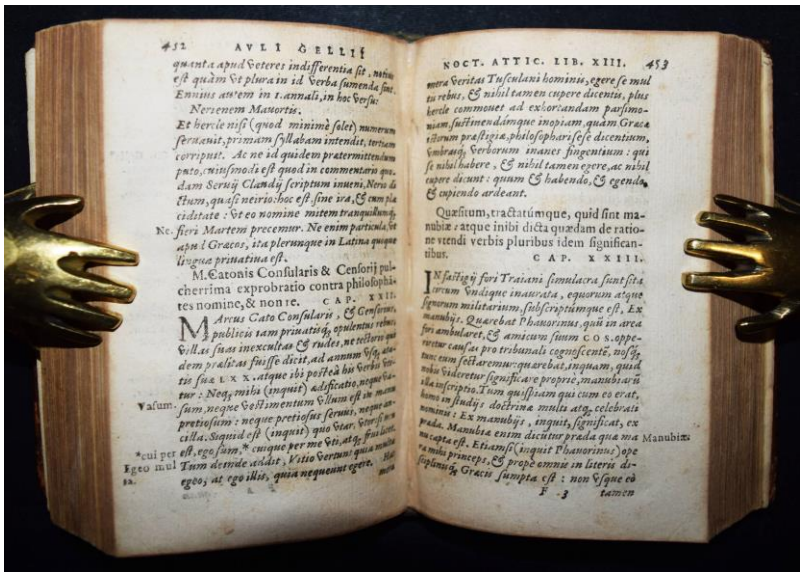 452 AVLI GELLII
quanta apud veteres indifferentia sit, notius
est quàm vt plura in id verba sumenda sint.
Ennius autem in 1. annali, in hoc versu:
Nerienem Mauortis.
Et hercle nisi (quod minimè solet) numerum
seruauit, primam syllabam intendit, tertiam
corripuit. Ac ne id quidem prætermittendum
puto, cuiusmodi est quod in commentario quo-
dam Seruij Claudij scriptum inueni, Nerio di
ctum, quasi neirio: hoc est, sine ira, & cum pla
ciditate: vt eo nomine mitem tranquillumq́;
Ne. fieri Martem precemur. Ne enim particula, vt
apud Græcos, ita plerunque in Latina quoque
lingua priuatiua est.
M. Catonis Consularis & Censorij pul-
cherrima exprobratio contra philosophã-
tes nomine, & non re. CAP. XXII.
MArcus Cato Consularis, & Censorius,
publicis iam priuatisq́; opulentus rebus,
villas suas inexcultas & rudes, ne tectorio qui
dem prælitas fuisse dicit, ad annum vsq; æta-
tis suæ LXX. atque ibi postea his verbis vti-
tur: Neq; mihi (inquit) ædificatio, neque va-
Vasum. sum, neque vestimentum vllum est in manu
pretiosum: neque pretiosus seruus, neque an-
cilla. Siquid est (inquit) quo vtar, vtor: si non
*cui per est, ego sum,* cuique per me vti, atq; frui licet.
Egeo mul Tum deinde addit, Vitio vertunt quia multa
ta. egeo, at ego illis, quia nequeunt egere. Hæc
mera
NOCT. ATTIC. LIB. XIII. 453
mera veritas Tusculani hominis, egere se mul
tis rebus, & nihil tamen cupere dicentis, plus
hercle commouet ad exhortandam parsimo-
niam, sustinendámque inopiam, quàm Græcæ
istorum præstigiæ, philosophari sese dicentium,
vmbrasq́; verborum inanes fingentium: qui
se nihil habere, & nihil tamen egere, ac nihil
cupere dicunt: quum & habendo, & egendo,
& cupiendo ardeant.
Quæsitum, tractatúmque, quid sint ma-
nubiæ: atque inibi dicta quædam de ratio-
ne vtendi verbis pluribus idem significan-
tibus. CAP. XXIII.
IN fastigij fori Traiani simulacra sunt sita
circum vndique inaurata, equorum atque
signorum militarium, subscriptúmque est, Ex
manubijs. Quærebat Phauorinus, quũ in area
fori ambularet, & amicum suum COS. oppe-
riretur causas pro tribunali cognoscentẽ, nosq́;
tunc eum sectaremur: quærebat, inquam, quid
nobis videretur significare propriè, manubiarũ
illa inscriptio. Tum quispiam qui cum eo erat,
homo in studijs doctrinæ multi atq; celebrati
nominis: Ex manubijs, inquit, significat, ex
præda. Manubia enim dicũtur præda quæ ma Manubiæ
nu capta est. Etiamsi (inquit Phauorinus) ope
ra mihi princeps, & prope omnis in literis di-
sciplinisq́; Græcis sumpta est: non vsque eò
F 3 tamen